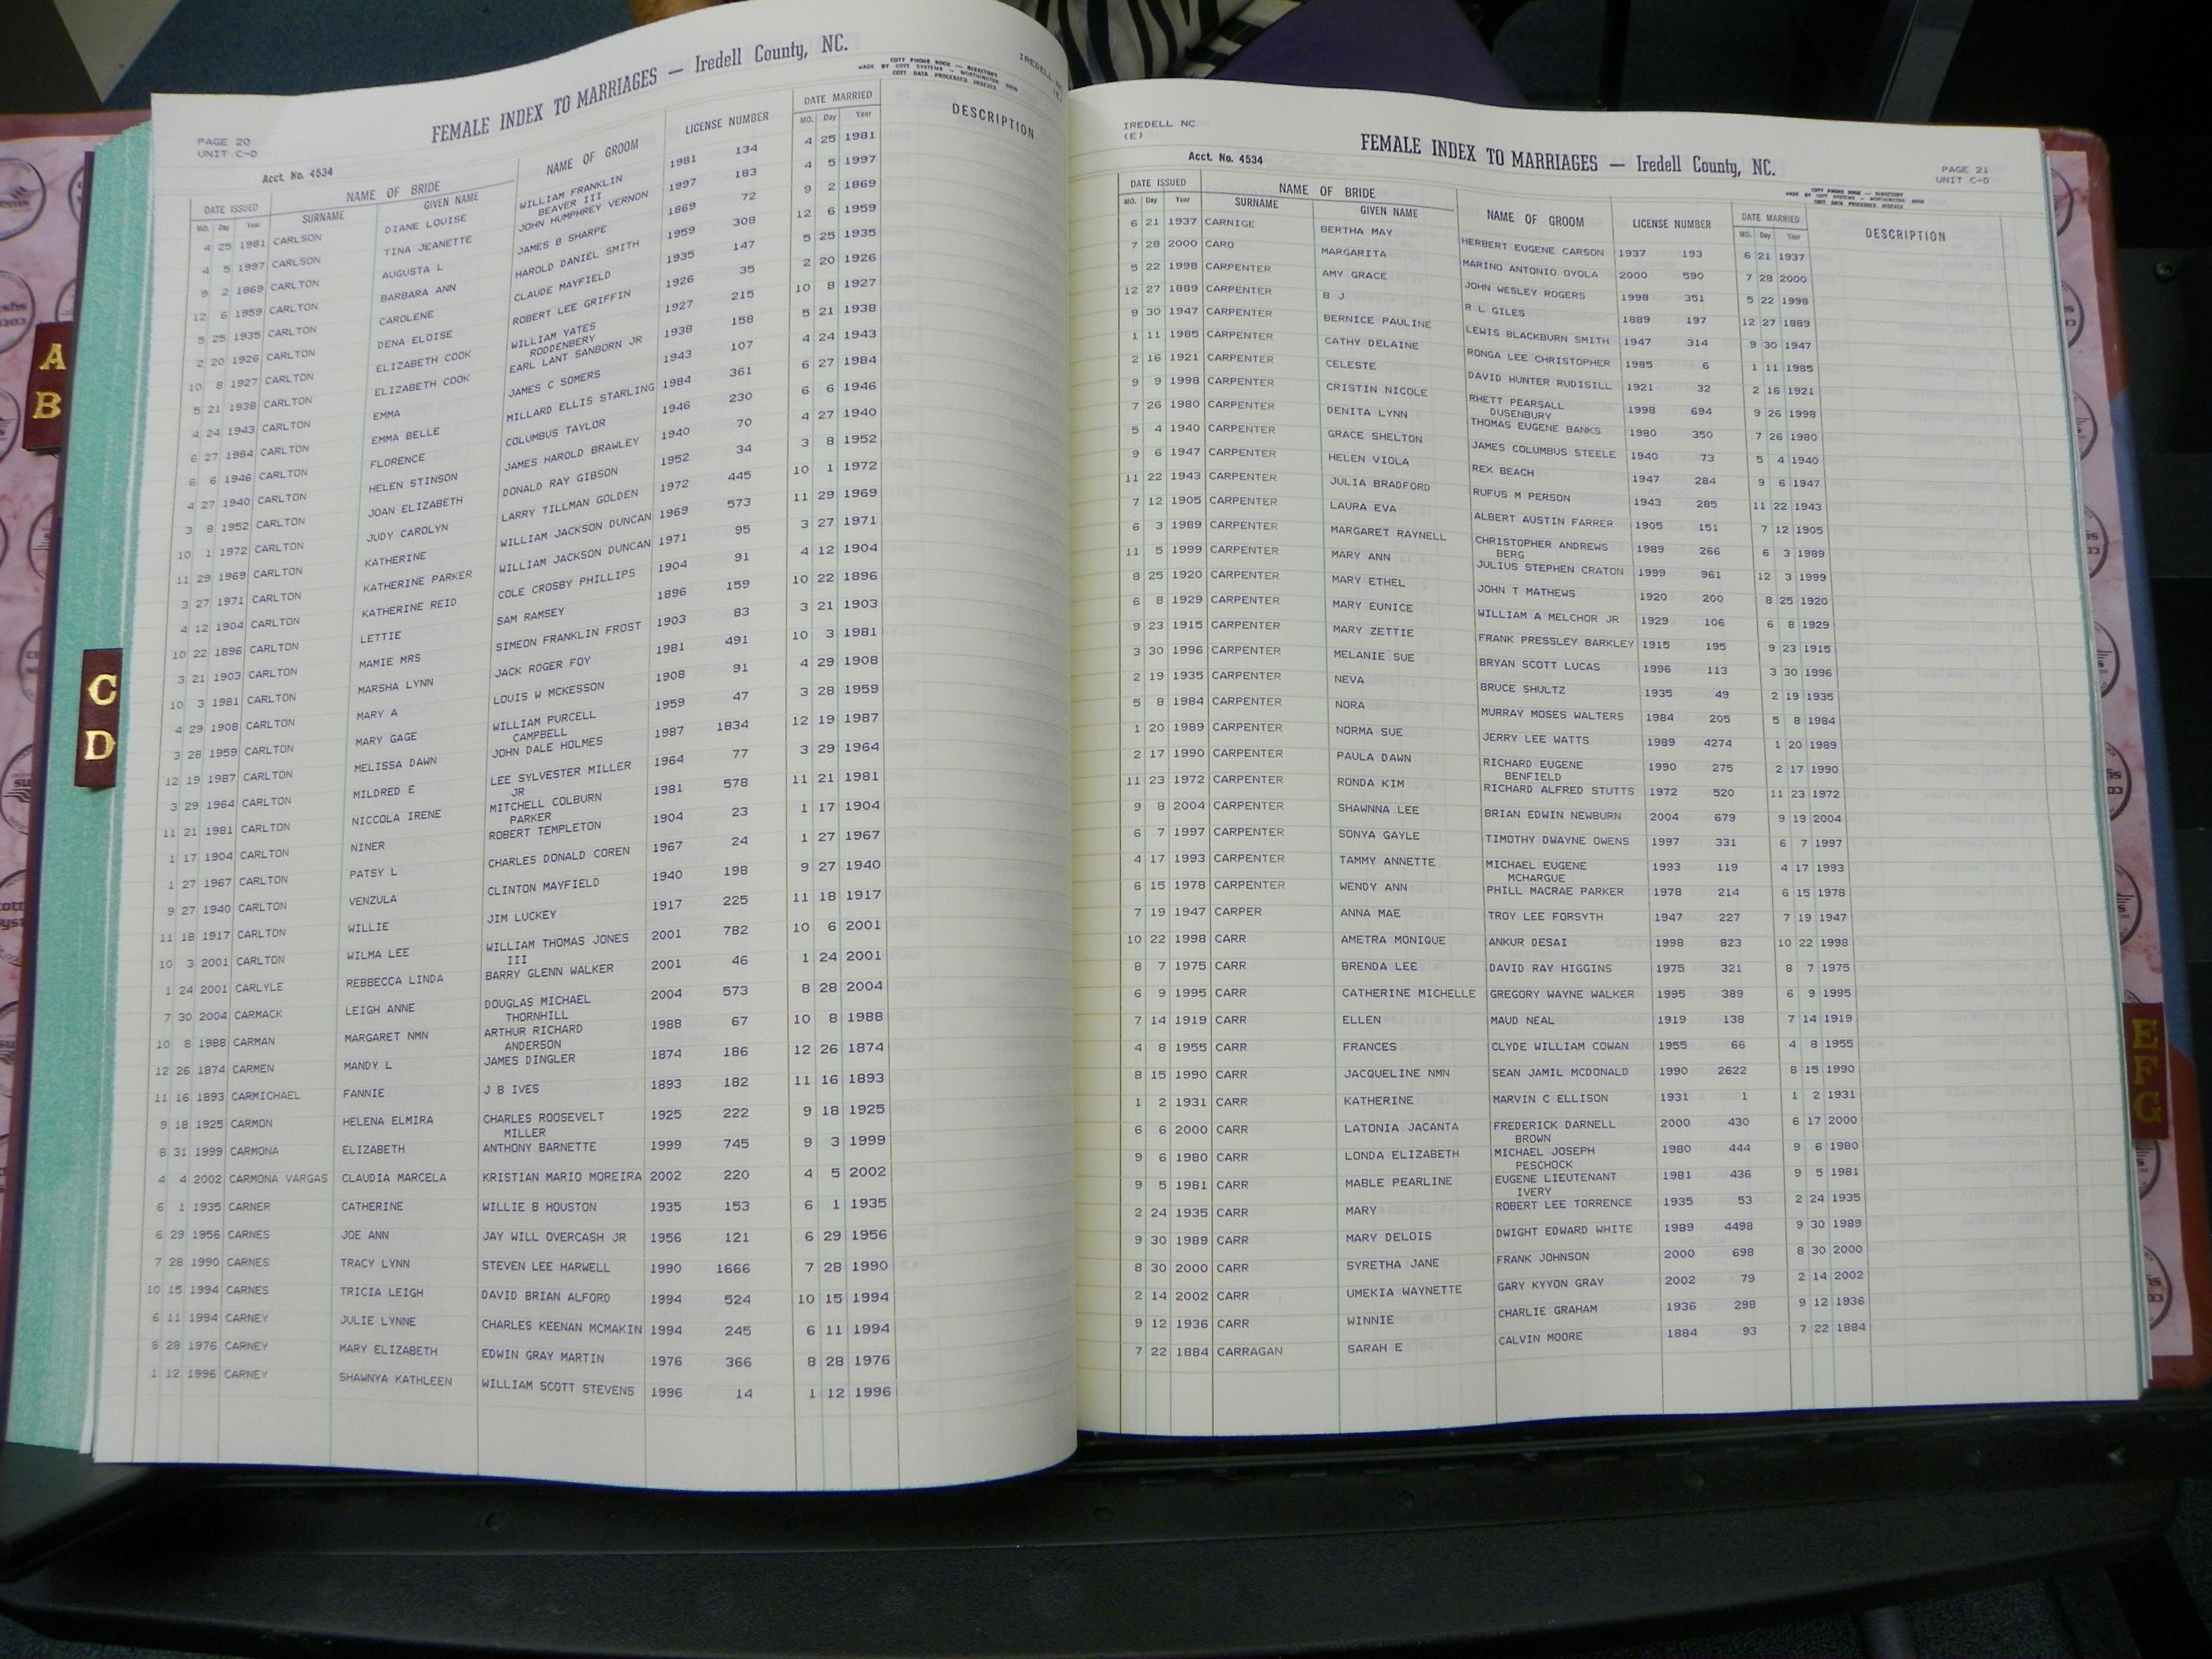 IREDELL NC
(E)
FEMALE INDEX TO MARRIAGES — Iredell County, NC.
COTT PHONE BOOK — DIRECTORY
MADE BY COTT SYSTEMS — WORTHINGTON OHIO
COTT DATA PROCESSED INDEXES
PAGE 20
UNIT C-D
Acct. No. 4534
DATE ISSUED NAME OF BRIDE NAME OF GROOM LICENSE NUMBER DATE MARRIED DESCRIPTION
MO. Day Year SURNAME GIVEN NAME MO. Day Year
4 25 1981 CARLSON DIANE LOUISE WILLIAM FRANKLIN 1981 134 4 25 1981
BEAVER III
4 5 1997 CARLSON TINA JEANETTE JOHN HUMPHREY VERNON 1997 183 4 5 1997
9 2 1869 CARLTON AUGUSTA L JAMES B SHARPE 1869 72 9 2 1869
12 6 1959 CARLTON BARBARA ANN HAROLD DANIEL SMITH 1959 308 12 6 1959
5 25 1935 CARLTON CAROLENE CLAUDE MAYFIELD 1935 147 5 25 1935
2 20 1926 CARLTON DENA ELOISE ROBERT LEE GRIFFIN 1926 35 2 20 1926
10 8 1927 CARLTON ELIZABETH COOK WILLIAM YATES 1927 215 10 8 1927
RODDENBERY
5 21 1938 CARLTON ELIZABETH COOK EARL LANT SANBORN JR 1938 158 5 21 1938
4 24 1943 CARLTON EMMA JAMES C SOMERS 1943 107 4 24 1943
6 27 1984 CARLTON EMMA BELLE MILLARD ELLIS STARLING 1984 361 6 27 1984
6 6 1946 CARLTON FLORENCE COLUMBUS TAYLOR 1946 230 6 6 1946
4 27 1940 CARLTON HELEN STINSON JAMES HAROLD BRAWLEY 1940 70 4 27 1940
3 8 1952 CARLTON JOAN ELIZABETH DONALD RAY GIBSON 1952 34 3 8 1952
10 1 1972 CARLTON JUDY CAROLYN LARRY TILLMAN GOLDEN 1972 445 10 1 1972
11 29 1969 CARLTON KATHERINE WILLIAM JACKSON DUNCAN 1969 573 11 29 1969
3 27 1971 CARLTON KATHERINE PARKER WILLIAM JACKSON DUNCAN 1971 95 3 27 1971
4 12 1904 CARLTON KATHERINE REID COLE CROSBY PHILLIPS 1904 91 4 12 1904
10 22 1896 CARLTON LETTIE SAM RAMSEY 1896 159 10 22 1896
3 21 1903 CARLTON MAMIE MRS SIMEON FRANKLIN FROST 1903 83 3 21 1903
10 3 1981 CARLTON MARSHA LYNN JACK ROGER FOY 1981 491 10 3 1981
4 29 1908 CARLTON MARY A LOUIS W MCKESSON 1908 91 4 29 1908
3 28 1959 CARLTON MARY GAGE WILLIAM PURCELL 1959 47 3 28 1959
CAMPBELL
12 19 1987 CARLTON MELISSA DAWN JOHN DALE HOLMES 1987 1834 12 19 1987
3 29 1964 CARLTON MILDRED E LEE SYLVESTER MILLER 1964 77 3 29 1964
JR
11 21 1981 CARLTON NICCOLA IRENE MITCHELL COLBURN 1981 578 11 21 1981
PARKER
1 17 1904 CARLTON NINER ROBERT TEMPLETON 1904 23 1 17 1904
1 27 1967 CARLTON PATSY L CHARLES DONALD COREN 1967 24 1 27 1967
9 27 1940 CARLTON VENZULA CLINTON MAYFIELD 1940 198 9 27 1940
11 18 1917 CARLTON WILLIE JIM LUCKEY 1917 225 11 18 1917
10 3 2001 CARLTON WILMA LEE WILLIAM THOMAS JONES 2001 782 10 6 2001
III
1 24 2001 CARLYLE REBBECCA LINDA BARRY GLENN WALKER 2001 46 1 24 2001
7 30 2004 CARMACK LEIGH ANNE DOUGLAS MICHAEL 2004 573 8 28 2004
THORNHILL
10 8 1988 CARMAN MARGARET NMN ARTHUR RICHARD 1988 67 10 8 1988
ANDERSON
12 26 1874 CARMEN MANDY L JAMES DINGLER 1874 186 12 26 1874
11 16 1893 CARMICHAEL FANNIE J B IVES 1893 182 11 16 1893
9 18 1925 CARMON HELENA ELMIRA CHARLES ROOSEVELT 1925 222 9 18 1925
MILLER
8 31 1999 CARMONA ELIZABETH ANTHONY BARNETTE 1999 745 9 3 1999
4 4 2002 CARMONA VARGAS CLAUDIA MARCELA KRISTIAN MARIO MOREIRA 2002 220 4 5 2002
6 1 1935 CARNER CATHERINE WILLIE B HOUSTON 1935 153 6 1 1935
6 29 1956 CARNES JOE ANN JAY WILL OVERCASH JR 1956 121 6 29 1956
7 28 1990 CARNES TRACY LYNN STEVEN LEE HARWELL 1990 1666 7 28 1990
10 15 1994 CARNES TRICIA LEIGH DAVID BRIAN ALFORD 1994 524 10 15 1994
6 11 1994 CARNEY JULIE LYNNE CHARLES KEENAN MCMAKIN 1994 245 6 11 1994
8 28 1976 CARNEY MARY ELIZABETH EDWIN GRAY MARTIN 1976 366 8 28 1976
1 12 1996 CARNEY SHAWNYA KATHLEEN WILLIAM SCOTT STEVENS 1996 14 1 12 1996
IREDELL NC
(E)
FEMALE INDEX TO MARRIAGES — Iredell County, NC.
PAGE 21
UNIT C-D
Acct. No. 4534
COTT PHONE BOOK — DIRECTORY
MADE BY COTT SYSTEMS — WORTHINGTON OHIO
COTT DATA PROCESSED INDEXES
DATE ISSUED NAME OF BRIDE NAME OF GROOM LICENSE NUMBER DATE MARRIED DESCRIPTION
MO. Day Year SURNAME GIVEN NAME MO. Day Year
6 21 1937 CARNIGE BERTHA MAY HERBERT EUGENE CARSON 1937 193 6 21 1937
7 28 2000 CARO MARGARITA MARINO ANTONIO OYOLA 2000 590 7 28 2000
5 22 1998 CARPENTER AMY GRACE JOHN WESLEY ROGERS 1998 351 5 22 1998
12 27 1889 CARPENTER B J R L GILES 1889 197 12 27 1889
9 30 1947 CARPENTER BERNICE PAULINE LEWIS BLACKBURN SMITH 1947 314 9 30 1947
1 11 1985 CARPENTER CATHY DELAINE RONGA LEE CHRISTOPHER 1985 6 1 11 1985
2 16 1921 CARPENTER CELESTE DAVID HUNTER RUDISILL 1921 32 2 16 1921
9 9 1998 CARPENTER CRISTIN NICOLE RHETT PEARSALL 1998 694 9 26 1998
DUSENBURY
7 26 1980 CARPENTER DENITA LYNN THOMAS EUGENE BANKS 1980 350 7 26 1980
5 4 1940 CARPENTER GRACE SHELTON JAMES COLUMBUS STEELE 1940 73 5 4 1940
9 6 1947 CARPENTER HELEN VIOLA REX BEACH 1947 284 9 6 1947
11 22 1943 CARPENTER JULIA BRADFORD RUFUS M PERSON 1943 285 11 22 1943
7 12 1905 CARPENTER LAURA EVA ALBERT AUSTIN FARRER 1905 151 7 12 1905
6 3 1989 CARPENTER MARGARET RAYNELL CHRISTOPHER ANDREWS 1989 266 6 3 1989
BERG
11 5 1999 CARPENTER MARY ANN JULIUS STEPHEN CRATON 1999 961 12 3 1999
8 25 1920 CARPENTER MARY ETHEL JOHN T MATHEWS 1920 200 8 25 1920
6 8 1929 CARPENTER MARY EUNICE WILLIAM A MELCHOR JR 1929 106 6 8 1929
9 23 1915 CARPENTER MARY ZETTIE FRANK PRESSLEY BARKLEY 1915 195 9 23 1915
3 30 1996 CARPENTER MELANIE SUE BRYAN SCOTT LUCAS 1996 113 3 30 1996
2 19 1935 CARPENTER NEVA BRUCE SHULTZ 1935 49 2 19 1935
5 8 1984 CARPENTER NORA MURRAY MOSES WALTERS 1984 205 5 8 1984
1 20 1989 CARPENTER NORMA SUE JERRY LEE WATTS 1989 4274 1 20 1989
2 17 1990 CARPENTER PAULA DAWN RICHARD EUGENE 1990 275 2 17 1990
BENFIELD
11 23 1972 CARPENTER RONDA KIM RICHARD ALFRED STUTTS 1972 520 11 23 1972
9 8 2004 CARPENTER SHAWNNA LEE BRIAN EDWIN NEWBURN 2004 679 9 19 2004
6 7 1997 CARPENTER SONYA GAYLE TIMOTHY DWAYNE OWENS 1997 331 6 7 1997
4 17 1993 CARPENTER TAMMY ANNETTE MICHAEL EUGENE 1993 119 4 17 1993
MCHARGUE
6 15 1978 CARPENTER WENDY ANN PHILL MACRAE PARKER 1978 214 6 15 1978
7 19 1947 CARPER ANNA MAE TROY LEE FORSYTH 1947 227 7 19 1947
10 22 1998 CARR AMETRA MONIQUE ANKUR DESAI 1998 823 10 22 1998
8 7 1975 CARR BRENDA LEE DAVID RAY HIGGINS 1975 321 8 7 1975
6 9 1995 CARR CATHERINE MICHELLE GREGORY WAYNE WALKER 1995 389 6 9 1995
7 14 1919 CARR ELLEN MAUD NEAL 1919 138 7 14 1919
4 8 1955 CARR FRANCES CLYDE WILLIAM COWAN 1955 66 4 8 1955
8 15 1990 CARR JACQUELINE NMN SEAN JAMIL MCDONALD 1990 2622 8 15 1990
1 2 1931 CARR KATHERINE MARVIN C ELLISON 1931 1 1 2 1931
6 6 2000 CARR LATONIA JACANTA FREDERICK DARNELL 2000 430 6 17 2000
BROWN
9 6 1980 CARR LONDA ELIZABETH MICHAEL JOSEPH 1980 444 9 6 1980
PESCHOCK
9 5 1981 CARR MABLE PEARLINE EUGENE LIEUTENANT 1981 436 9 5 1981
IVERY
2 24 1935 CARR MARY ROBERT LEE TORRENCE 1935 53 2 24 1935
9 30 1989 CARR MARY DELOIS DWIGHT EDWARD WHITE 1989 4498 9 30 1989
8 30 2000 CARR SYRETHA JANE FRANK JOHNSON 2000 698 8 30 2000
2 14 2002 CARR UMEKIA WAYNETTE GARY KYYON GRAY 2002 79 2 14 2002
9 12 1936 CARR WINNIE CHARLIE GRAHAM 1936 298 9 12 1936
7 22 1884 CARRAGAN SARAH E CALVIN MOORE 1884 93 7 22 1884
A
B
C
D
E
F
G